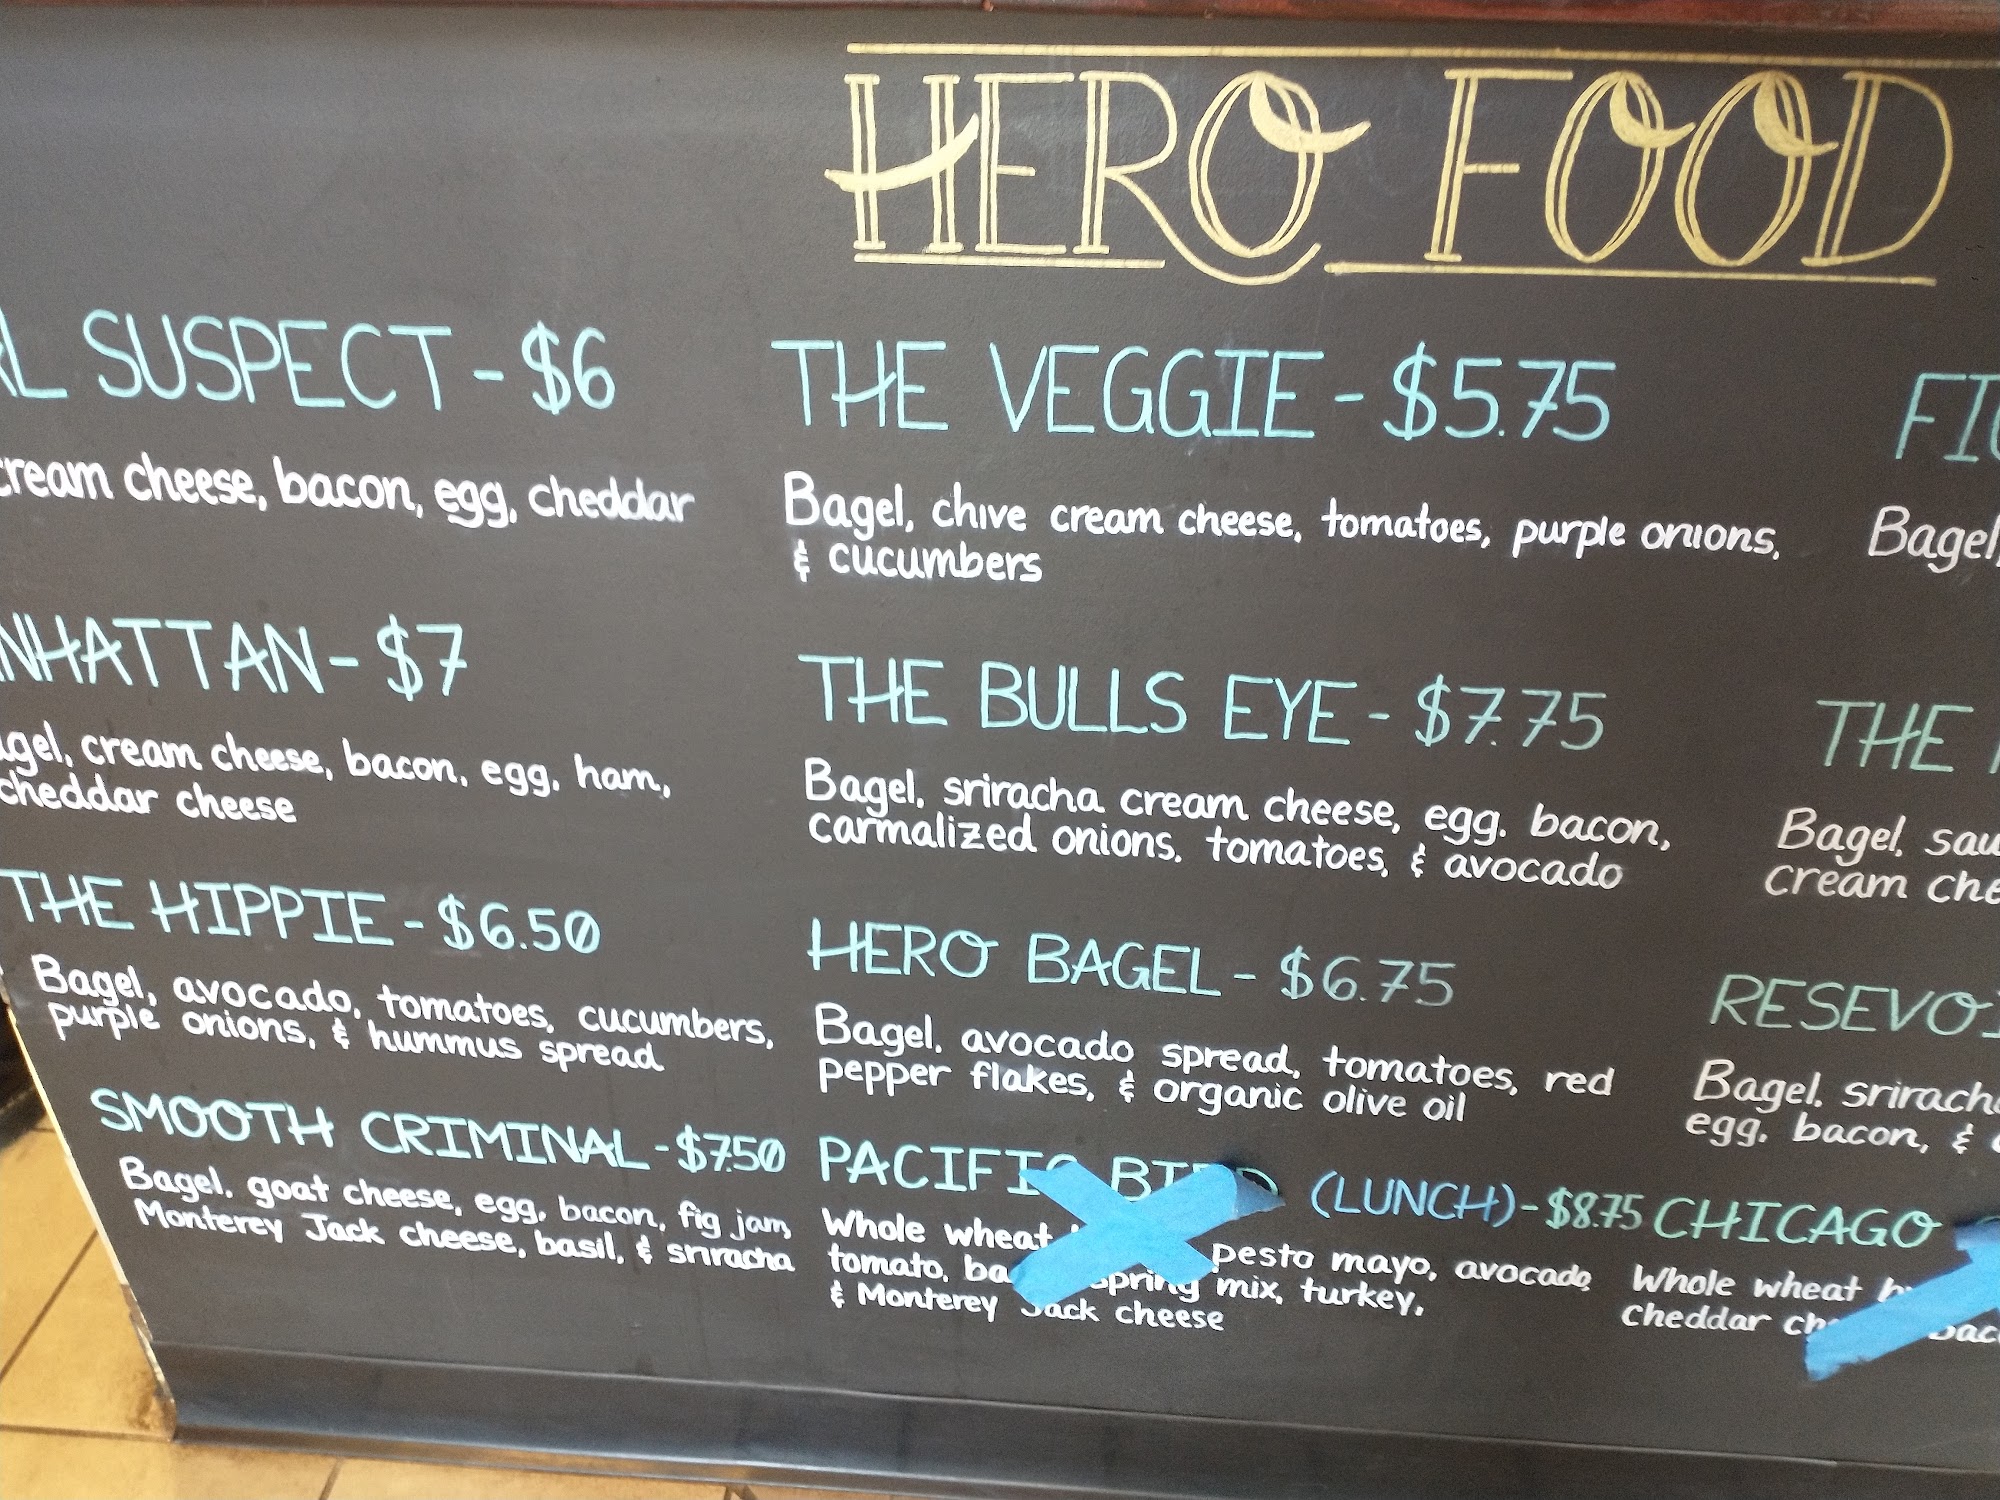 HERO FOOD
SUSPECT - $6
cream cheese, bacon, egg, cheddar
NHATTAN - $7
cream cheese, bacon, egg, ham,
cheddar cheese
THE HIPPIE - $6.50
Bagel, avocado, tomatoes, cucumbers,
purple onions, & hummus spread
SMOOTH CRIMINAL - $7.50
Bagel, goat cheese, egg, bacon, fig jam,
Monterey Jack cheese, basil, & sriracha
THE VEGGIE - $5.75
Bagel, chive cream cheese, tomatoes, purple onions,
& cucumbers
THE BULLS EYE - $7.75
Bagel, sriracha cream cheese, egg, bacon,
carmalized onions, tomatoes, & avocado
HERO BAGEL - $6.75
Bagel, avocado spread, tomatoes, red
pepper flakes, & organic olive oil
PACIFIC BIRD (LUNCH) - $8.75
Whole wheat pesto mayo, avocado,
tomato, spring mix, turkey,
& Monterey Jack cheese
Bagel,
THE
Bagel,
cream
RESEVO
Bagel, sriracha
egg, bacon, &
CHICAGO
Whole wheat
cheddar